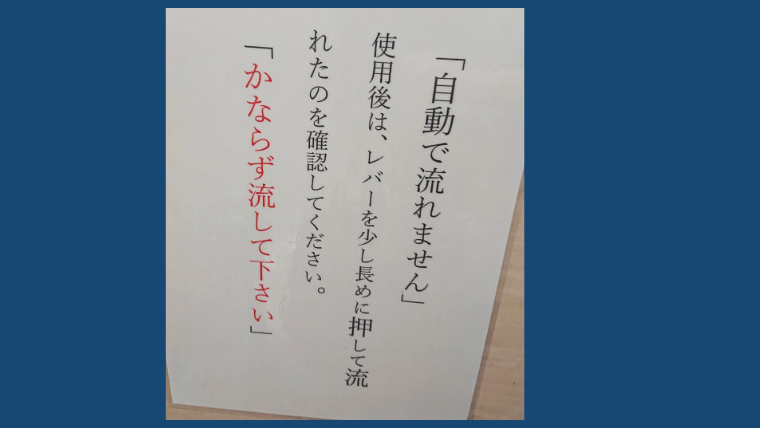 「自動で流れません」
使用後は、レバーを少し長めに押して流
れたのを確認してください。
「かならず流して下さい」